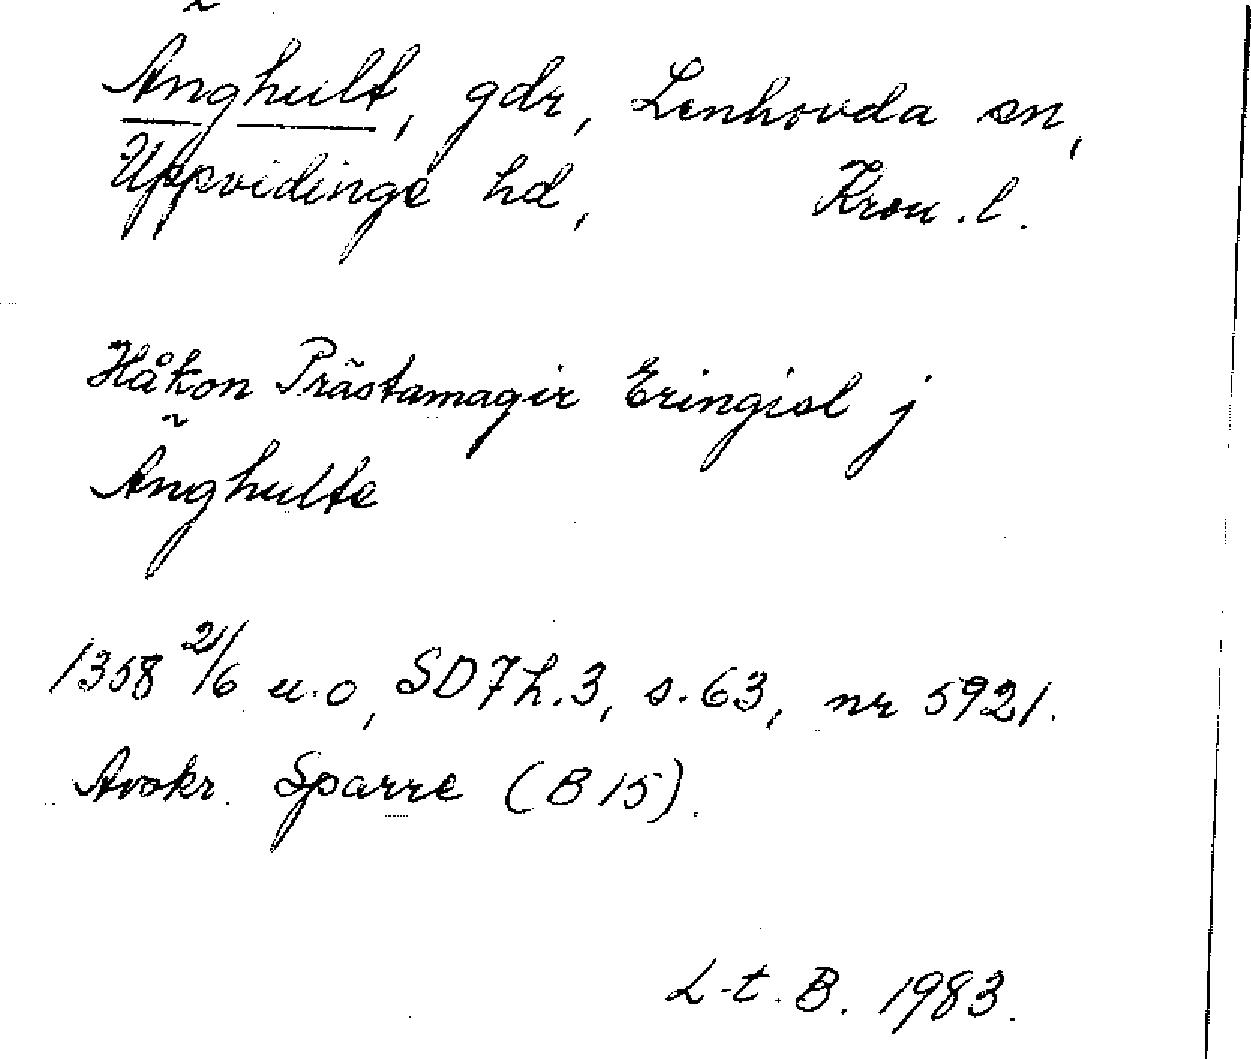 Änghult, gdr, Lenhovda sn,
Uppvidinge hd, Kron.l.
Håkon Prästamagir Eringisl j
Änghulte
1358 21/6 u.o, SD7h.3, s.63, nr 5921.
Avskr. Sparre (B15).
L-t. B. 1983.